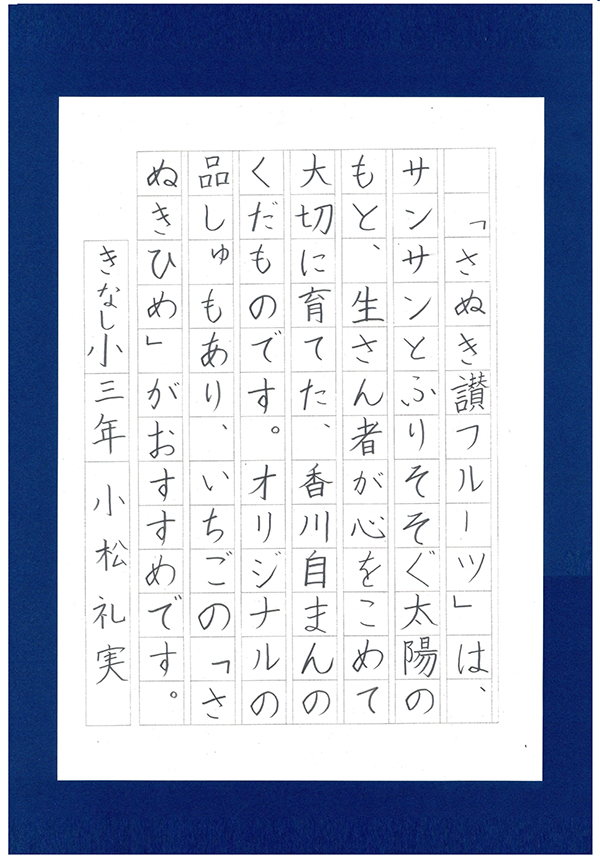 「さぬき讃フルーツ」は、
サンサンとふりそそぐ太陽の
もと、生さん者が心をこめて
大切に育てた、香川自まんの
くだものです。オリジナルの
品しゅもあり、いちごの「さ
ぬきひめ」がおすすめです。
きなし小三年 小松礼実